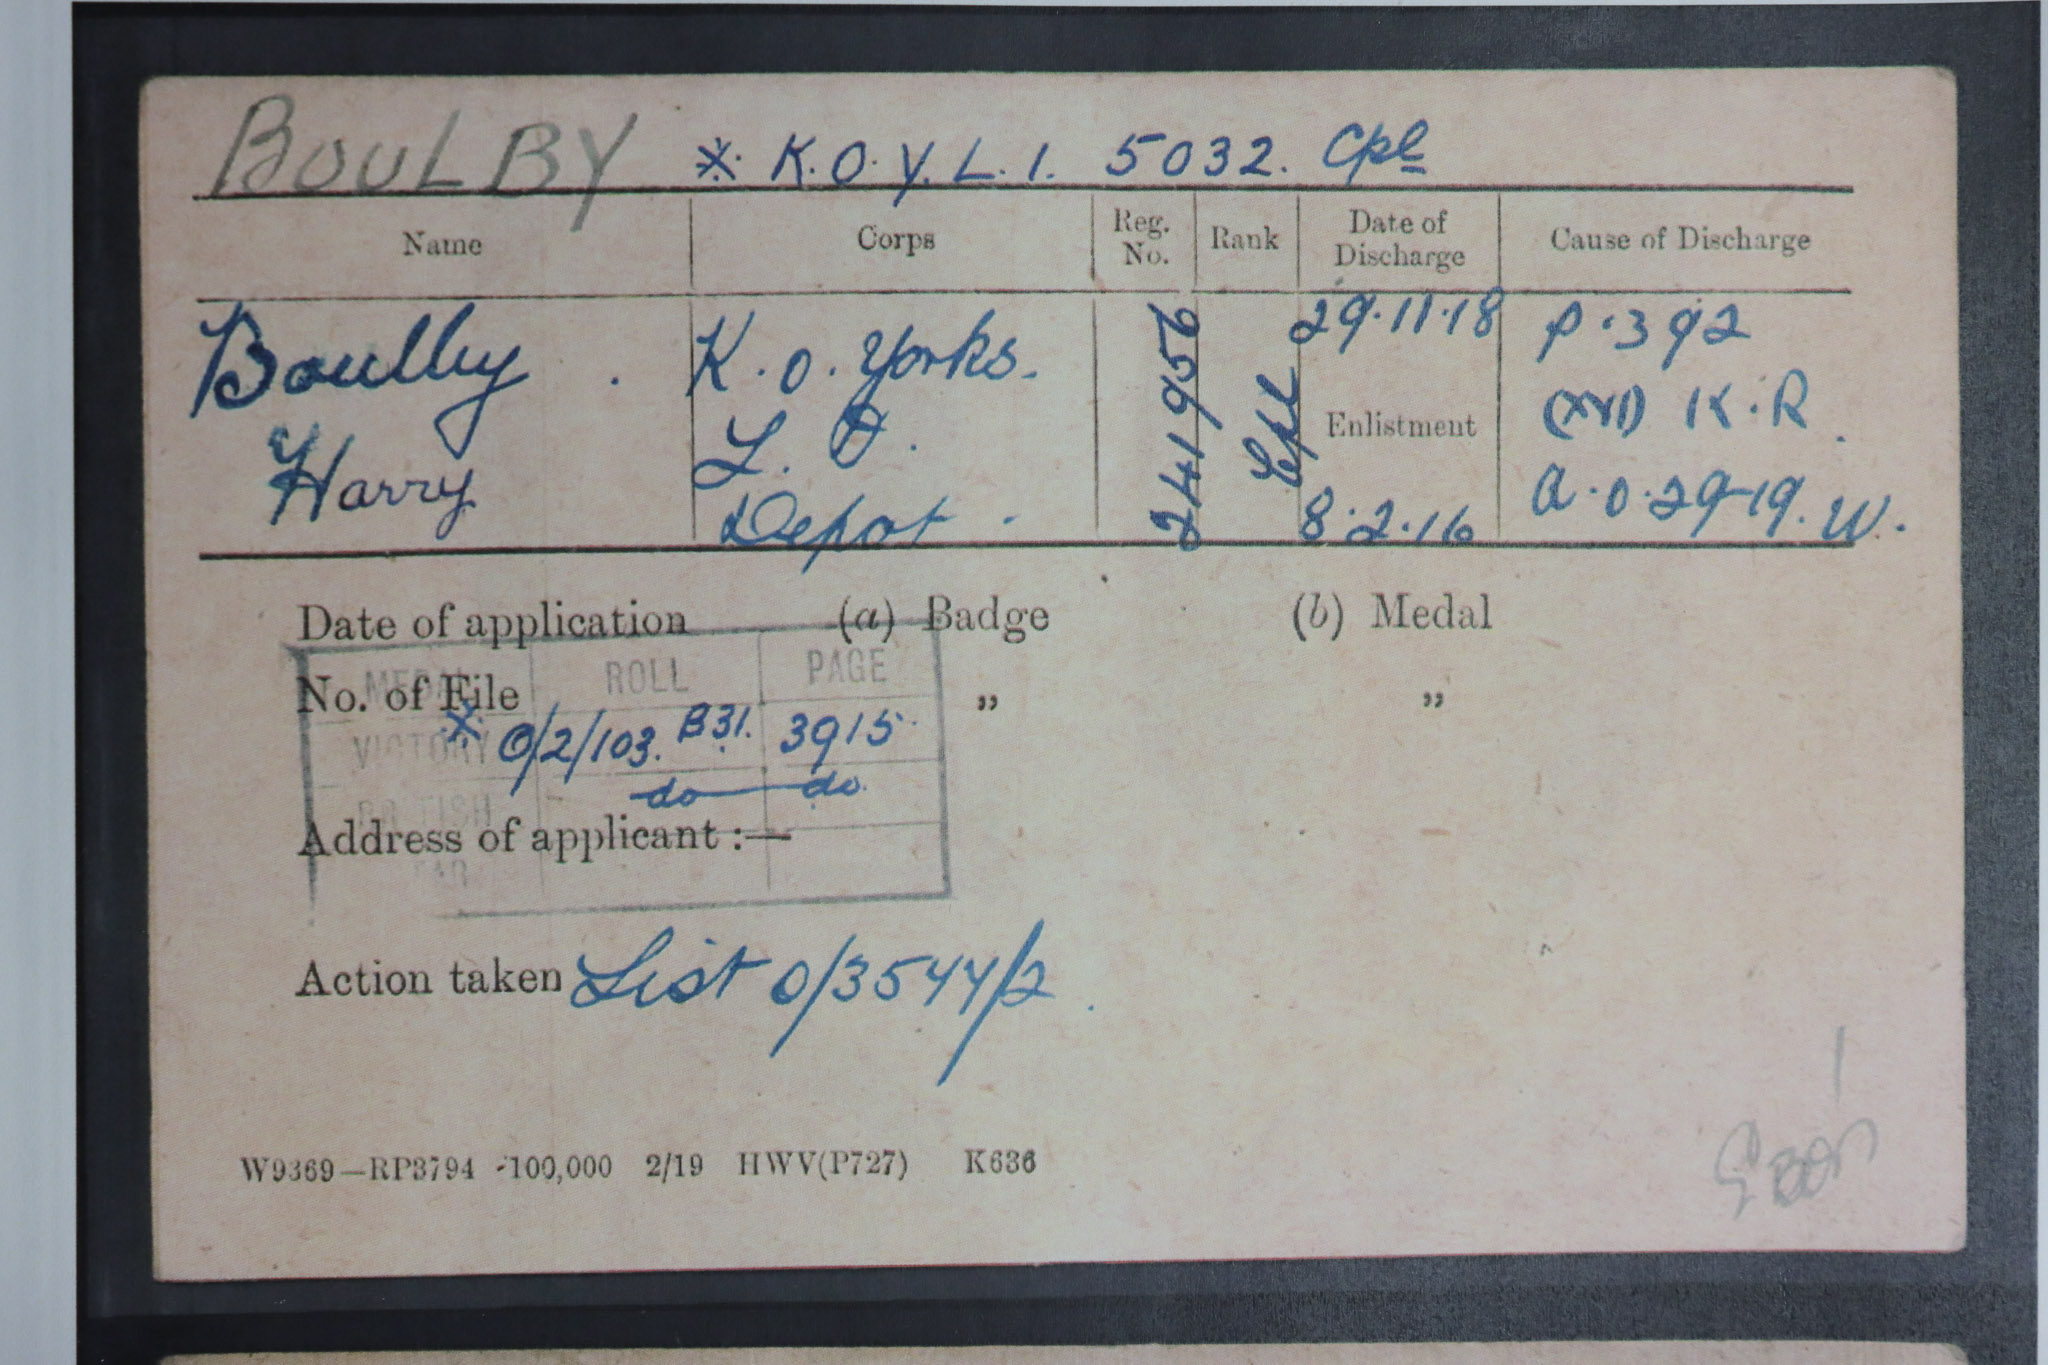 BOULBY * K.O.Y.L.I. 5032. Cpl
Name Corps Reg. No. Rank Date of Discharge Cause of Discharge
Boulby K.O. Yorks. 241956 Cpl 29.11.18 P.392
Harry L. I. Enlistment (XVI) K.R.
Depot. 8.2.16 A.O.29-19. W.
Date of application (a) Badge (b) Medal
MEDAL ROLL PAGE
No. of File " "
VICTORY * O/2/103. B31. 3915
BRITISH do do.
Address of applicant :—
WAR
Action taken List O/3544/2.
W9369—RP3794 -100,000 2/19 HWV(P727) K636